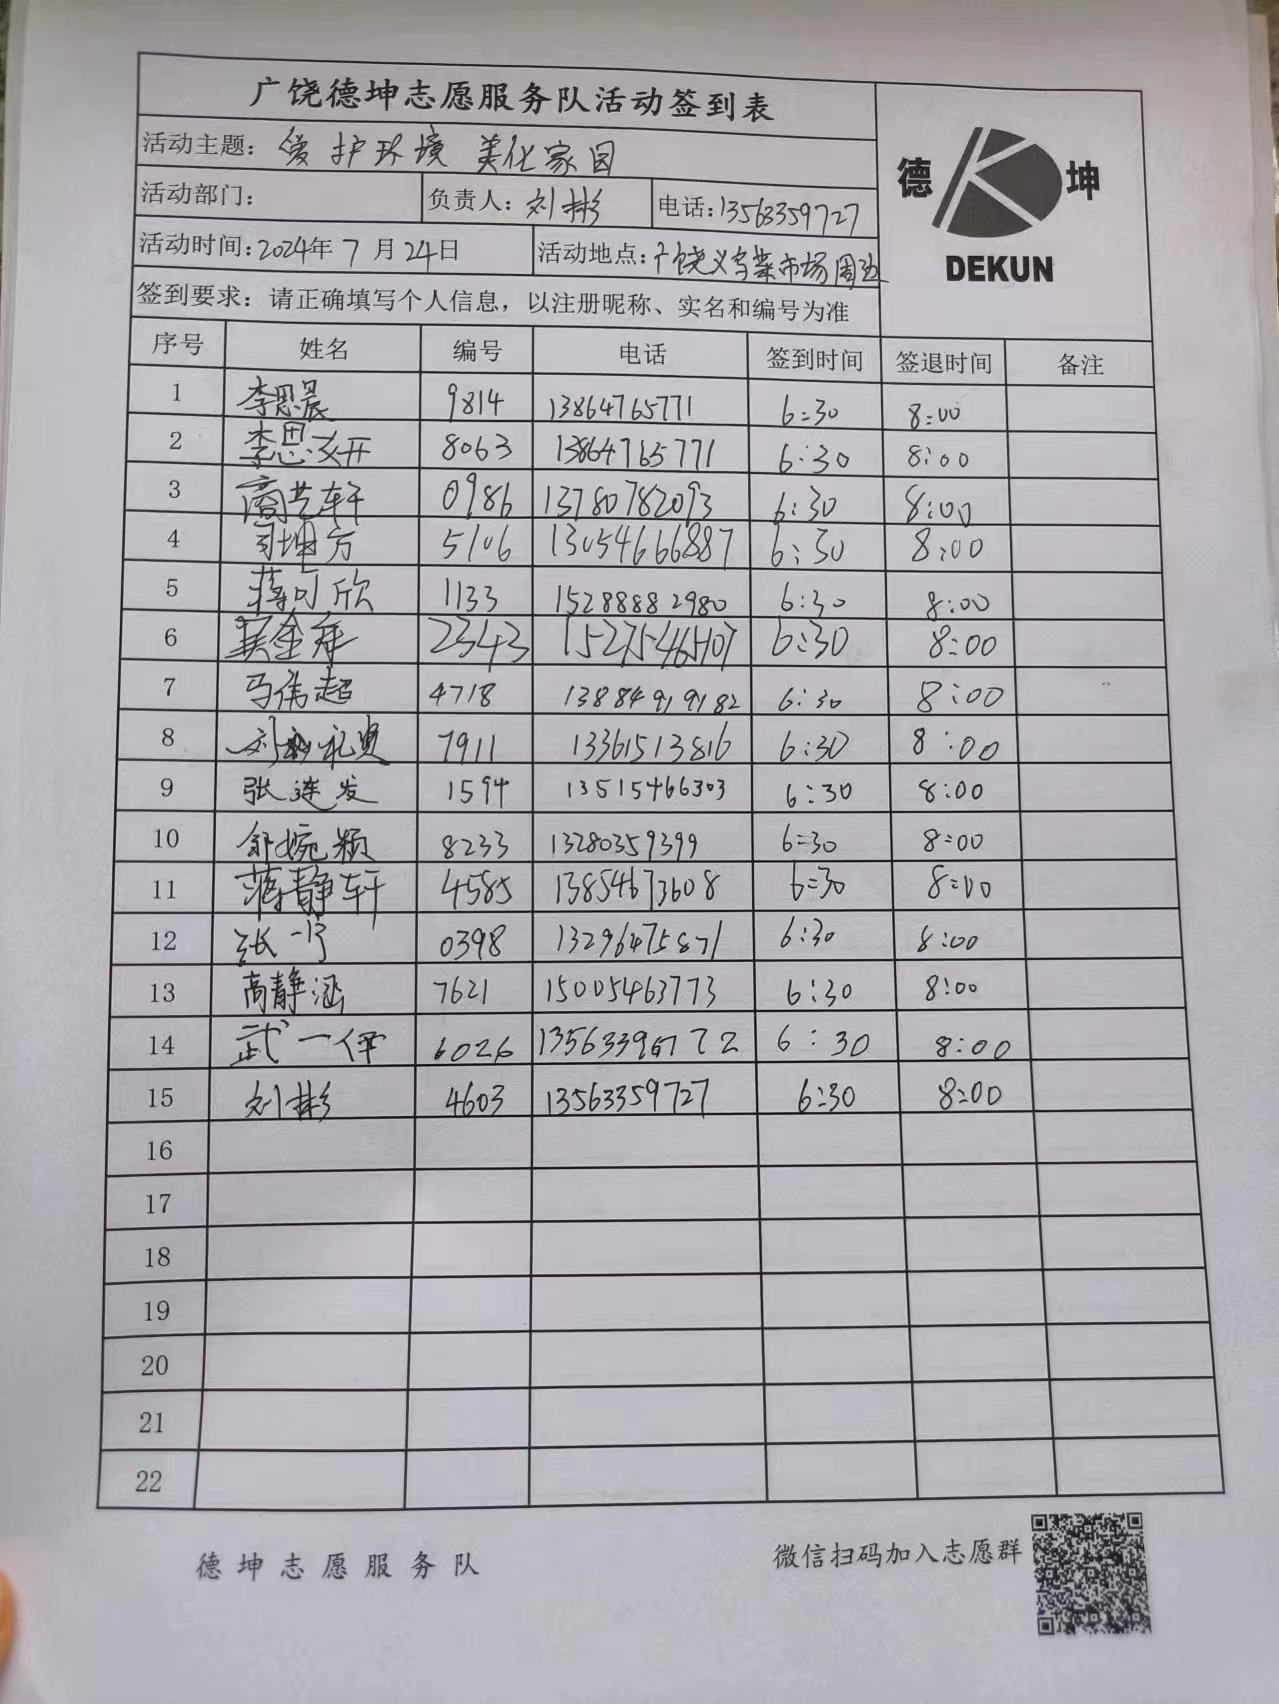 广饶德坤志愿服务队活动签到表
活动主题：爱护环境 美化家园
德 坤
DEKUN
活动部门： 负责人：刘彬 电话：13563359727
活动时间：2024年7月24日 活动地点：广饶义乌菜市场周边
签到要求：请正确填写个人信息，以注册昵称、实名和编号为准
序号 姓名 编号 电话 签到时间 签退时间 备注
1 李思晨 9814 13864765771 6:30 8:00
2 李思妍 8063 13864765771 6:30 8:00
3 商艺轩 0986 13780782093 6:30 8:00
4 司坤方 5106 13054666887 6:30 8:00
5 蒋可欣 1133 15288882980 6:30 8:00
6 2343 15275465107 6:30 8:00
7 马伟超 4718 13884919182 6:30 8:00
8 7911 13361513816 6:30 8:00
9 张连发 1594 13515466303 6:30 8:00
10 舒婉颖 8233 13280359399 6:30 8:00
11 蒋静轩 4585 13854673608 6:30 8:00
12 张一 0398 13296475871 6:30 8:00
13 高静涵 7621 15005463773 6:30 8:00
14 武一伊 6026 6:30 8:00
15 刘彬 4603 13563359727 6:30 8:00
16
17
18
19
20
21
22
德坤志愿服务队
微信扫码加入志愿群